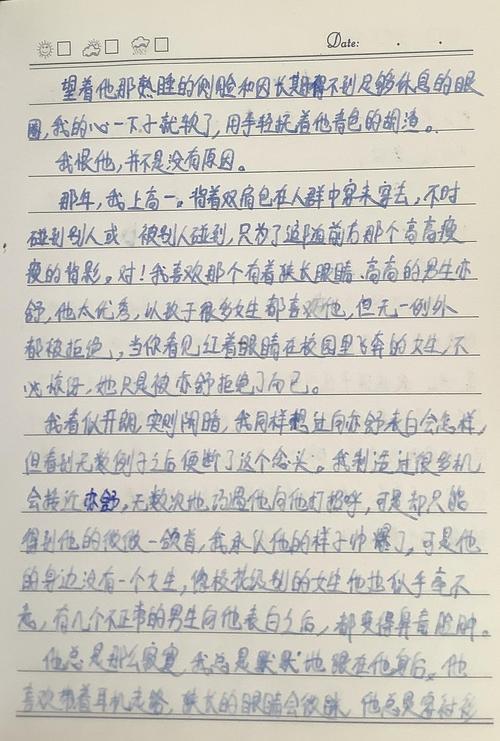 Date:
望着他那熟睡的侧脸和因长期得不到足够休息的眼
圈,我的心一下子就软了,用手轻抚着他青色的胡渣。
我恨他,并不是没有原因。
那年,我上高一。背着双肩包在人群中穿来穿去,不时
碰到别人或被别人碰到,只为了追随前方那个高高瘦
瘦的背影。对!我喜欢那个有着狭长眼睛、高高的男生亦
舒,他太优秀,以致于很多女生都喜欢他,但无一例外
都被拒绝,当你看见红着眼睛在校园里飞奔的女生,不
必惊讶,她只是被亦舒拒绝了而已。
我看似开朗,实则闭暗,我同样想过向亦舒表白会怎样,
但看到无数例子之后便断了这个念头。我制造过很多机
会接近亦舒,无数次地巧遇他向他打招呼,可是却只能
得到他的微微一颔首,我承认他的样子帅爆了,可是他
的身边没有一个女生,像校花级别的女生他也似乎在不
意,有几个不正常的男生向他表白之后,都变得鼻青脸肿。
他总是那么寂寞,我总是默默地跟在他身后。他
喜欢带着耳机走路,狭长的眼睛会微眯,他总是穿衬衫